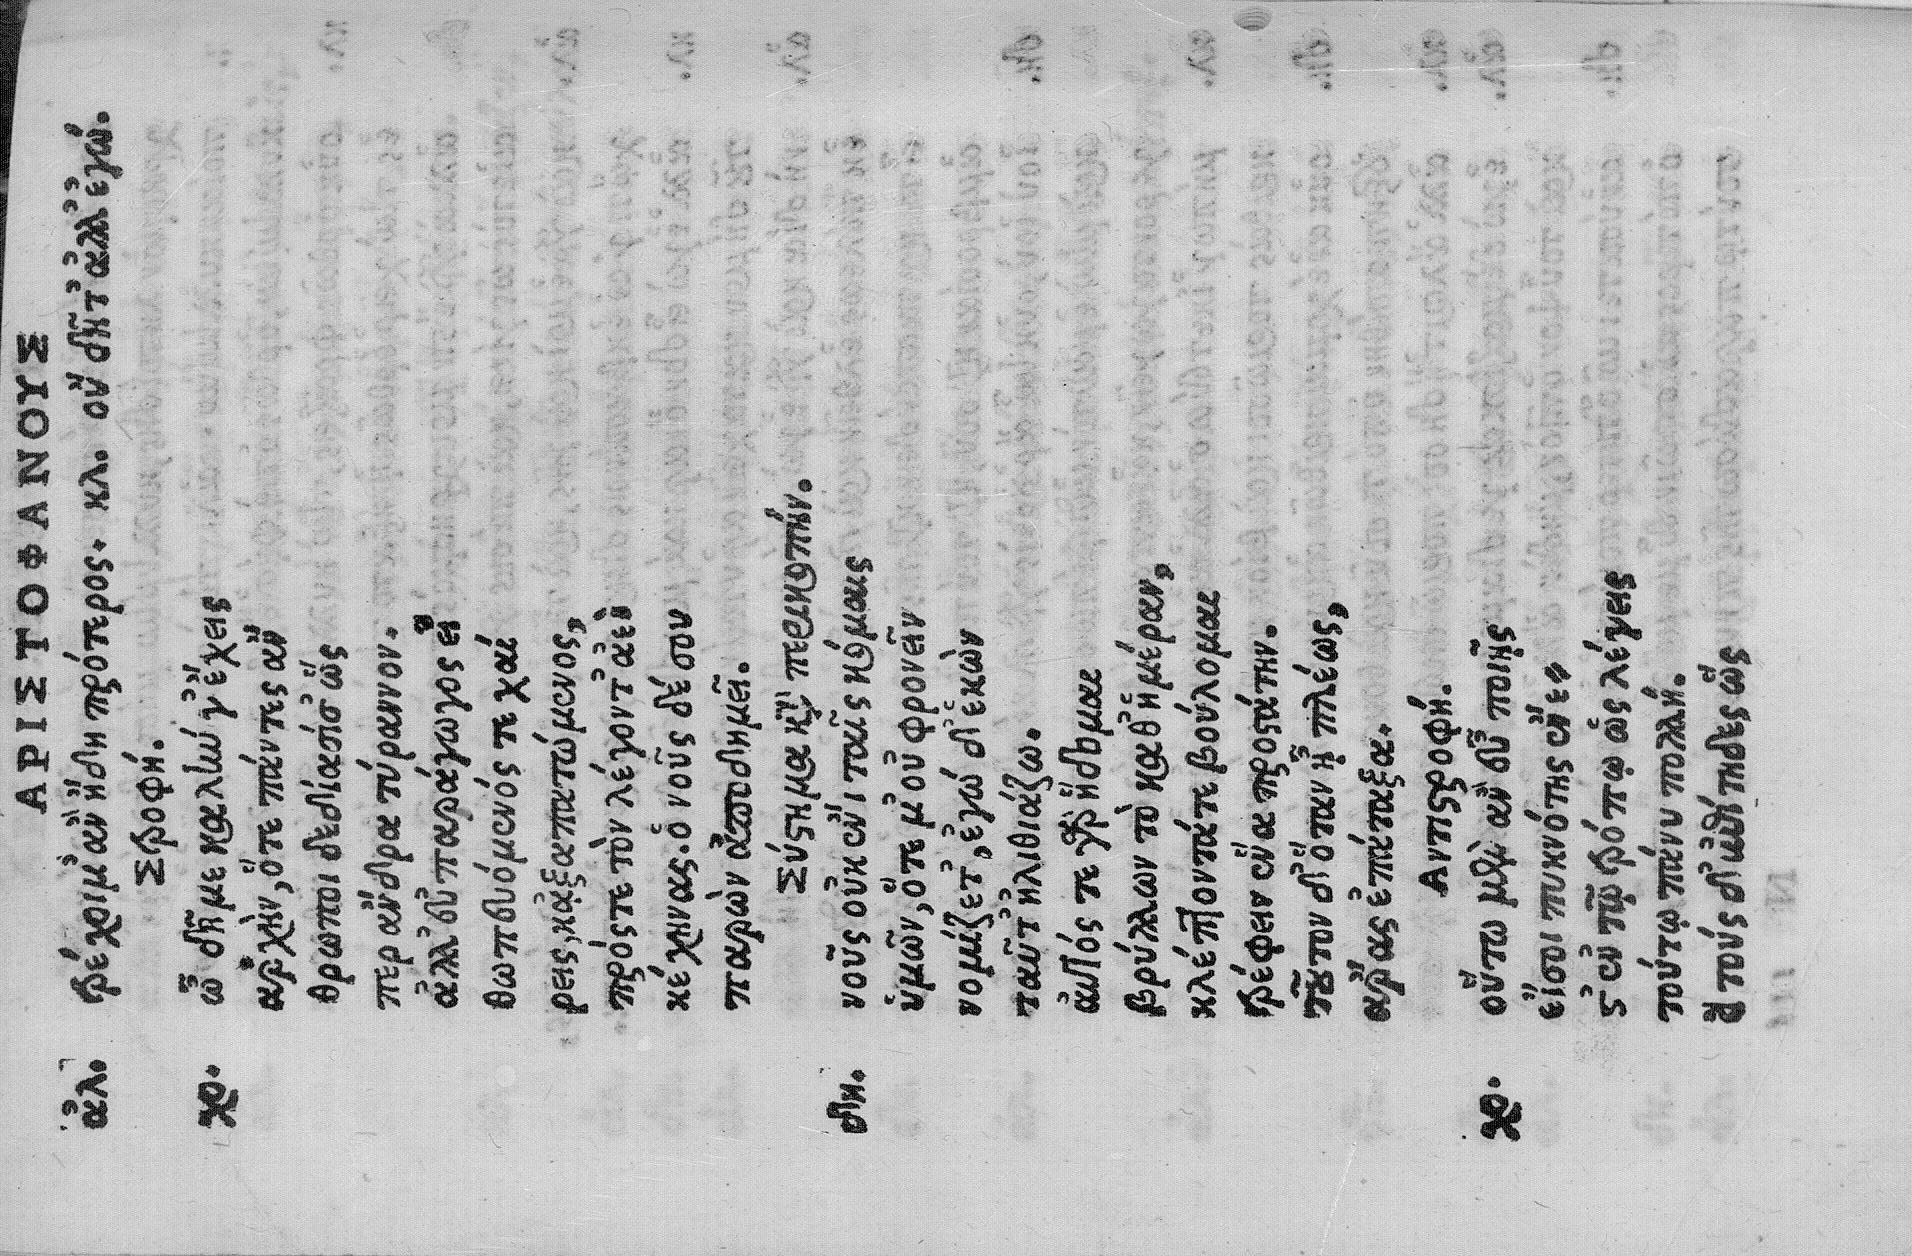 ΑΡΙΣΤΟΦΑΝΟΥΣ
ἀλ. τρέχοιμ' ἂν ἤδη πρότερος. κλ. οὐ δῆτ' ἀλλ' ἐγώ.
Στροφή.
χο. ὦ δῆμε καλήν γ' ἔχεις
ἀρχὴν, ὅτε πάντες ἄν
θρωποι δεδίασί σ' ὥς
περ ἄνδρα τύραννον.
ἀλλ' εὐπαράγωγος εἶ
θωπευόμενός τε χαί
ρεις, κἀξαπατώμενος,
πρός τε τὸν λέγοντ' ἀεὶ
κέχηνας. ὁ νοῦς δέ σου
παρὼν ἀποδημεῖ.
Σύστημα κτ͂ περικοπήν.
δη. νοῦς οὐκ ἔνι ταῖς κόμαις
ὑμῶν, ὅτε μ' οὐ φρονεῖν
νομίζετ', ἐγώ δ' ἑκὼν
ταῦτ' ἠλιθιάζω.
αὐτός τε γὸ ἥδομαι
βρύλλων τὸ καθ' ἡμέραν,
κλέπτοντά τε βούλομαι
τρέφειν ἕνα προστάτην.
τοῦτον δ' ὅταν ᾖ πλέως,
ἄρας ἐπάταξα.
Αντιστροφή.
χο. οὕτω μὲν ἂν εὖ ποιῇς
εἴ σοι πυκνότης ἔνε
στ' ἐν τῷ τρόπῳ ὡς λέγεις
τούτῳ πάνυ πολλή.
εἰ τούς δ' ἐπίτηδες ὥς